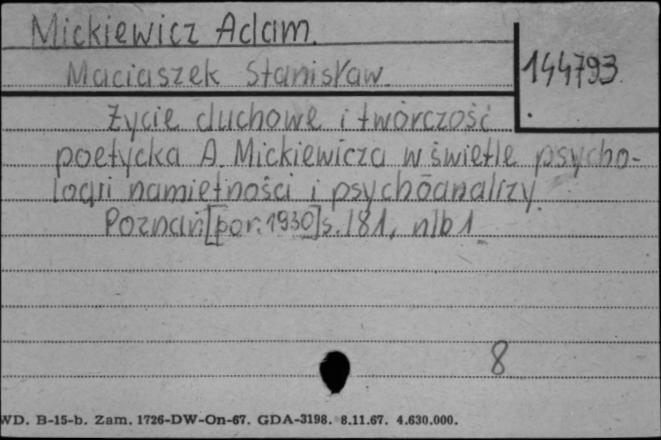 Mickiewicz Adam.
144793
Maciaszek Stanisław.
Życie duchowe i twórczość
poetycka A. Mickiewicza w świetle psycho-
logii namiętności i psychoanalizy.
Poznań [por. 1930] s. 181, nlb 1
8
WD. B-15-b. Zam. 1726-DW-On-67. GDA-3198. 8.11.67. 4.630.000.